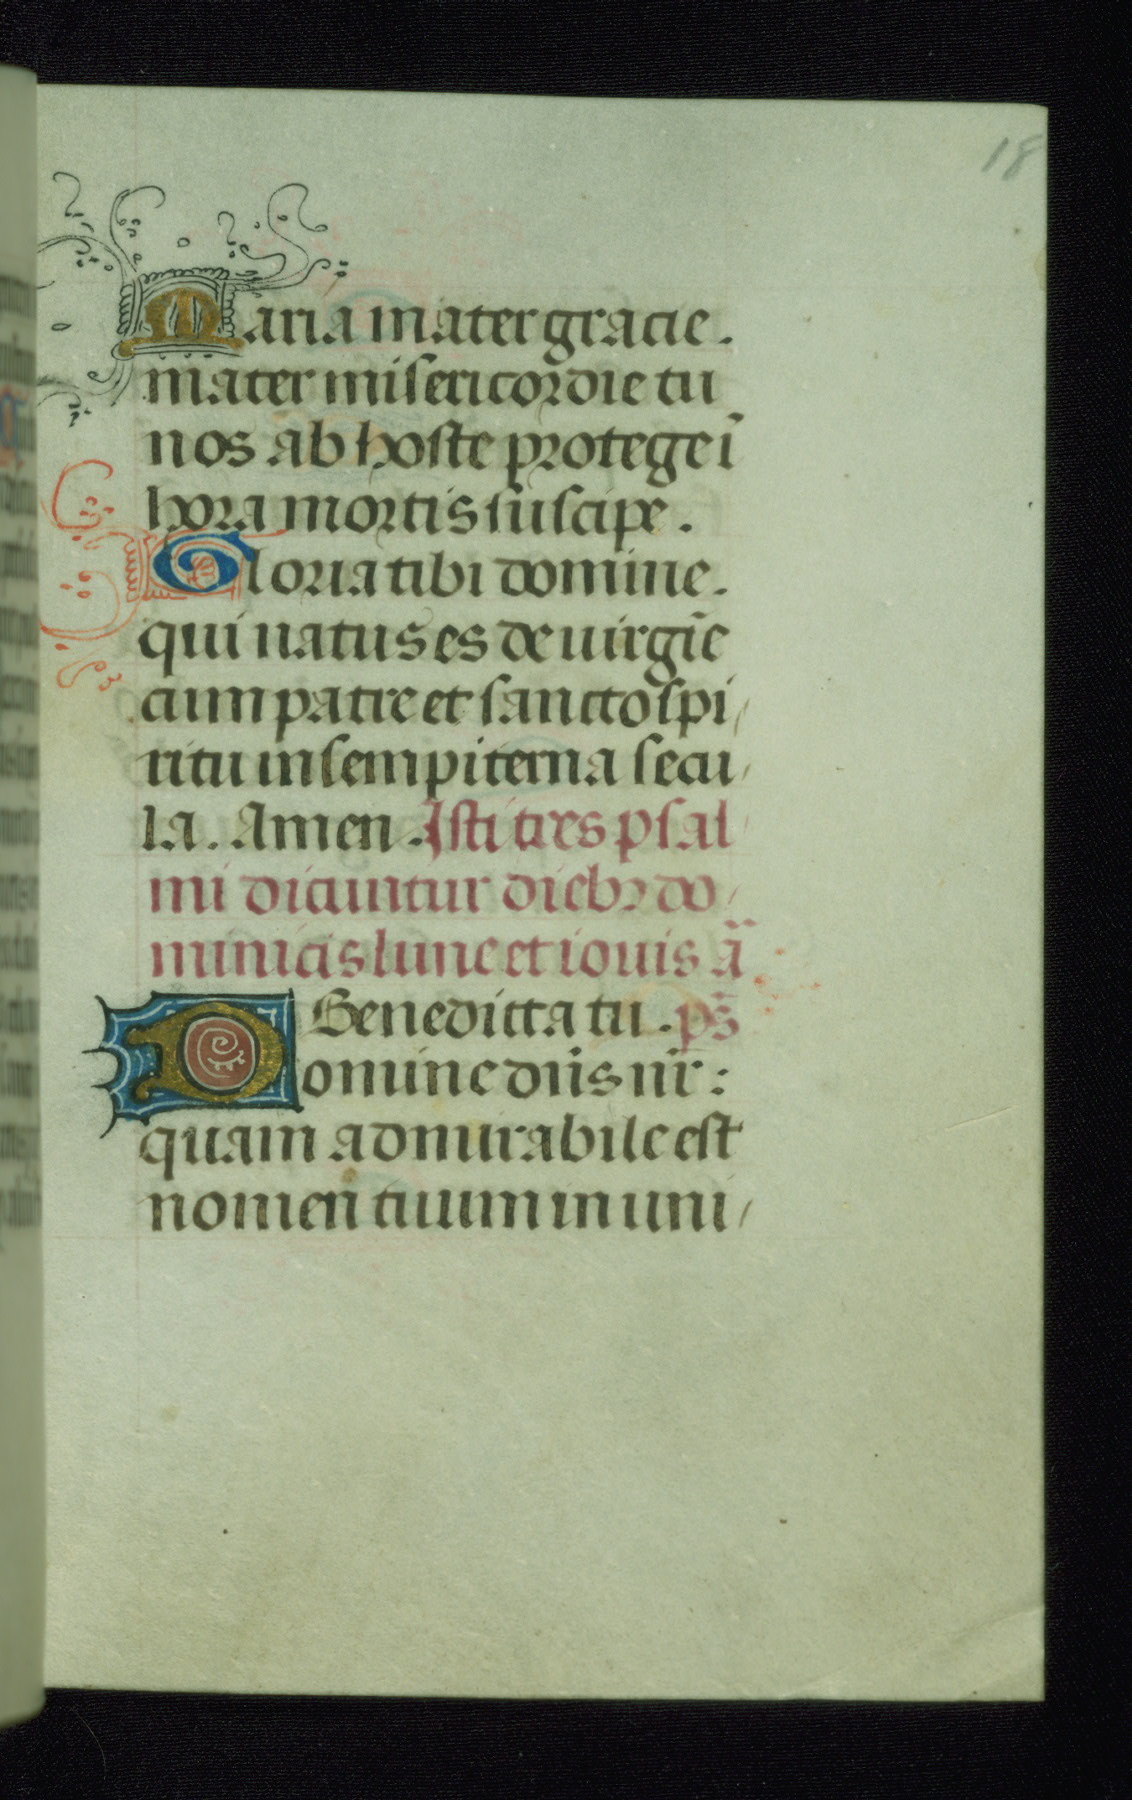 18
Maria mater gracie.
mater misericordie tu
nos ab hoste protege ī
hora mortis suscipe.
Gloria tibi domine.
qui natus es de uirgīe
cum patre et sancto spi
ritu in sempiterna secu
la. Amen. Isti tres psal
mi dicuntur dieb⁊ do
minicis lune et iouis ā
Benedicta tu. ps̄
Domine dn̄s nr̄:
quam admirabile est
nomen tuum in uni